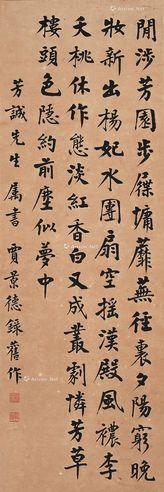 閒涉芳園步屧慵蘼蕪徑裏夕陽窮晚
妝新出楊妃水團扇空搖漢殿風襛李
夭桃休作態淡紅香白又成叢劇憐芳草
樓頭色隱約前塵似夢中
芳誠先生屬書 賈景德錄舊作